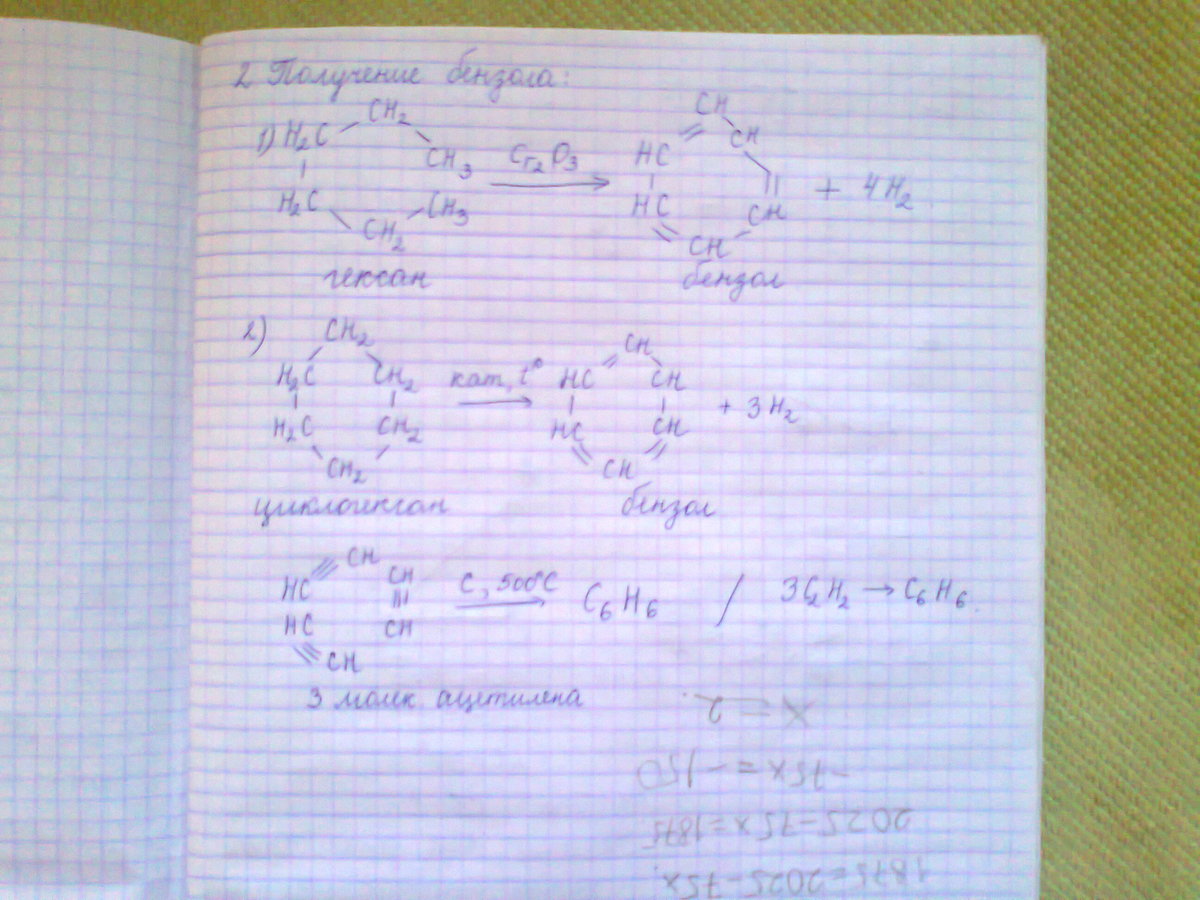 2 Получение бензола:
1) H₂C CH₂ CH₃ H₂C CH₂ CH₃ Cr₂O₃ → HC CH CH HC CH CH + 4H₂
гексан бензол
2) CH₂ H₂C CH₂ H₂C CH₂ CH₂ кат, t° → CH HC CH HC CH CH + 3H₂
циклогексан бензол
HC≡CH CH≡CH HC≡CH C, 500°C → C₆H₆ / 3C₂H₂ → C₆H₆.
3 молек. ацетилена
1875=2025-75x.
2025-75x=1875
-75x=-150
x=2.